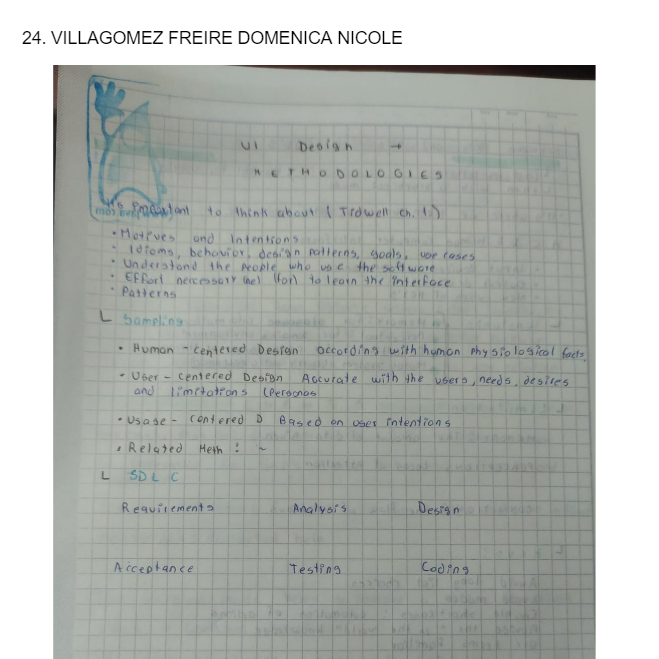 24. VILLAGOMEZ FREIRE DOMENICA NICOLE
UI Design →
METHODOLOGIES
to think about ( Tidwell ch. 1.)
• Motives and Intentions
- Idioms, behavior, design patterns, goals, use cases
• Understand the people who use the software
• Effort neicessary (ne) (for) to learn the interface
• Patterns
L Sampling
• Human - centered Design according with human physiological facts.
- User - centered Design Accurate with the users, needs, desires
and limitations (Personas
• Usage - centered D Based on user intentions
• Related Meth : ~
L SDLC
Requirements Analysis Design
Acceptance Testing Coding